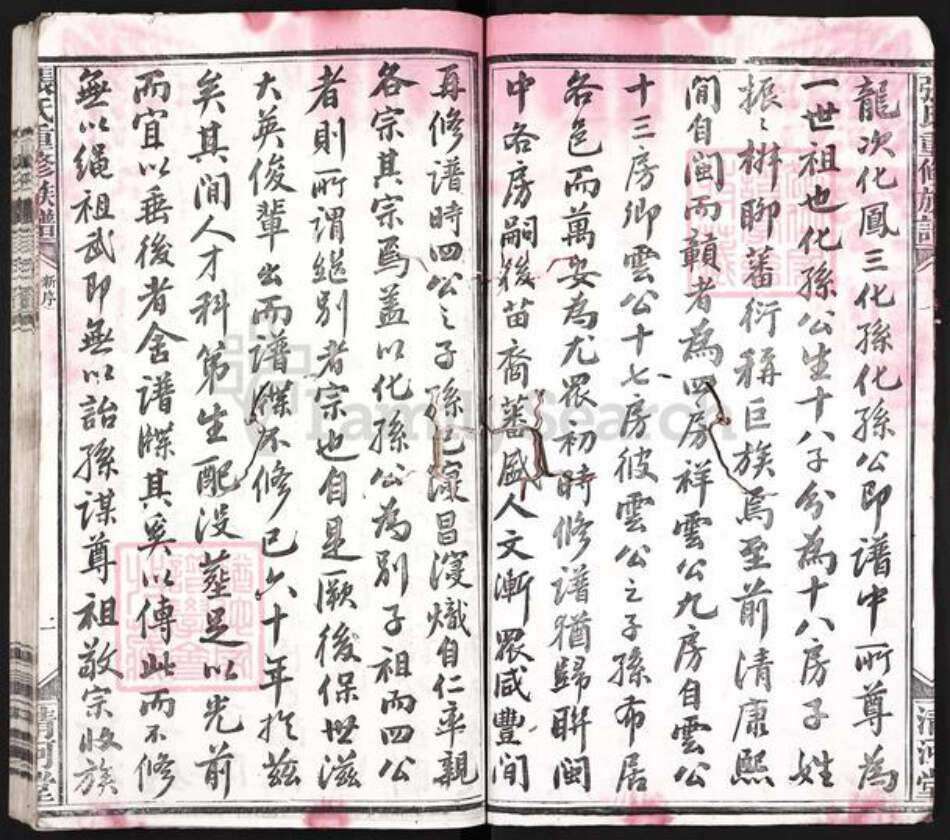 龍次化鳳三化孫化孫公即譜中所尊為
一世祖也化孫公生十八子分為十八房子姓
振〻椒聊蕃衍稱巨族焉至前清康熙
間自閩而贛者為四房祥雲公九房自雲公
十三房卿雲公十七房彼雲公之子孫布居
各邑而萬安為尤眾初時修譜猶歸聯閩
中各房嗣後苗裔蕃盛人文漸眾咸豐間
再修譜時四公之子孫已寖昌寖熾自仁率親
各宗其宗焉盖以化孫公為別子祖而四公
者則所謂繼別者宗也自是厥後保世滋
大英俊輩出而譜牒不修已六十年於茲
矣其間人才科第生配没塟足以光前
而宜以垂後者舍譜牒其奚以傳此而不修
無以繩祖武即無以詒孫謀尊祖敬宗收族
張氏重修族譜
新序
二
清河堂
FamilySearch